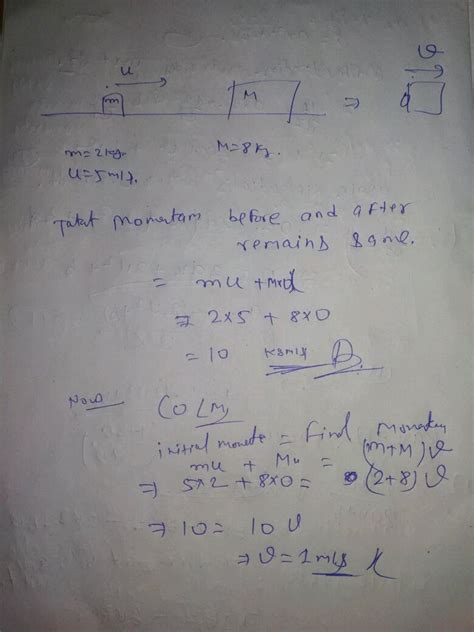 u
m
M
⇒
v
m=2kg.
M=8kg.
u=5m/s.
Total Momentum before and after
remains same.
= mu + Mxu
⇒ 2×5 + 8×0
= 10 kgm/s
Now COLM
initial = Find Momentum
mu + Mu = (m+M)v
⇒ 5×2 + 8×0 = (2+8)v
⇒ 10 = 10v
⇒ v = 1m/s